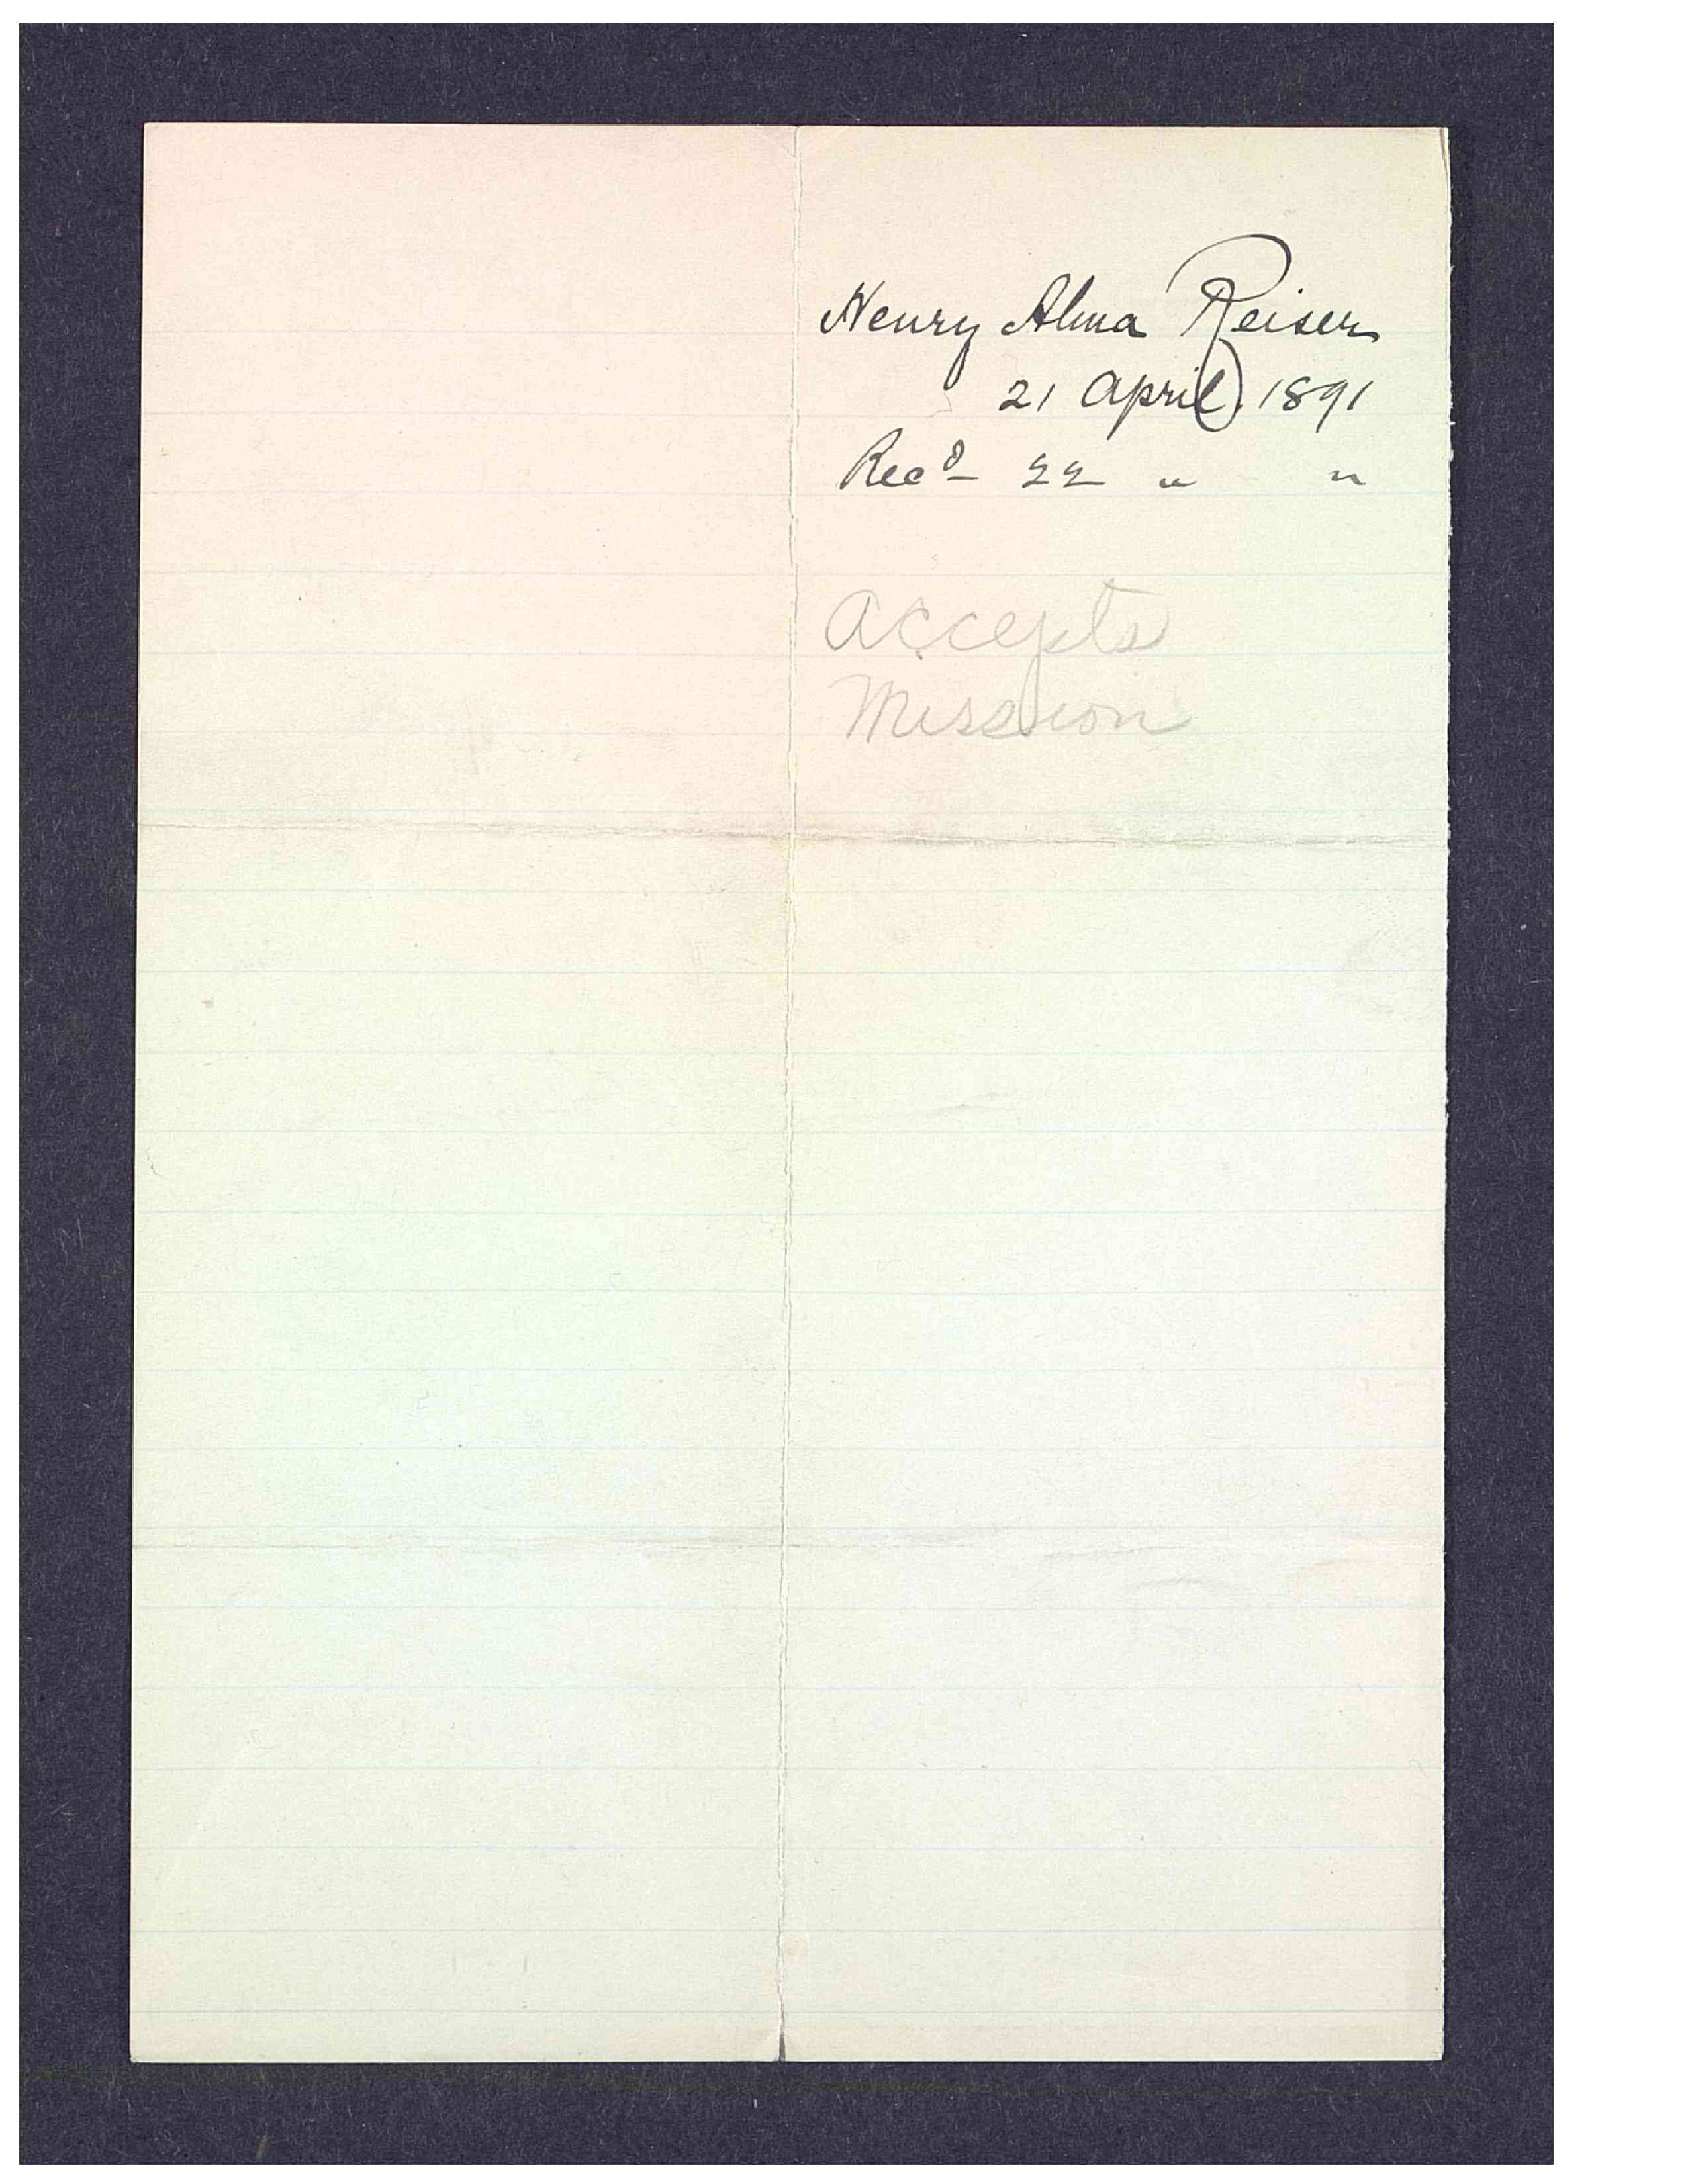 Henry Alma Reiser
21 April. 1891
Recd 22 " "
Accepts
Mission